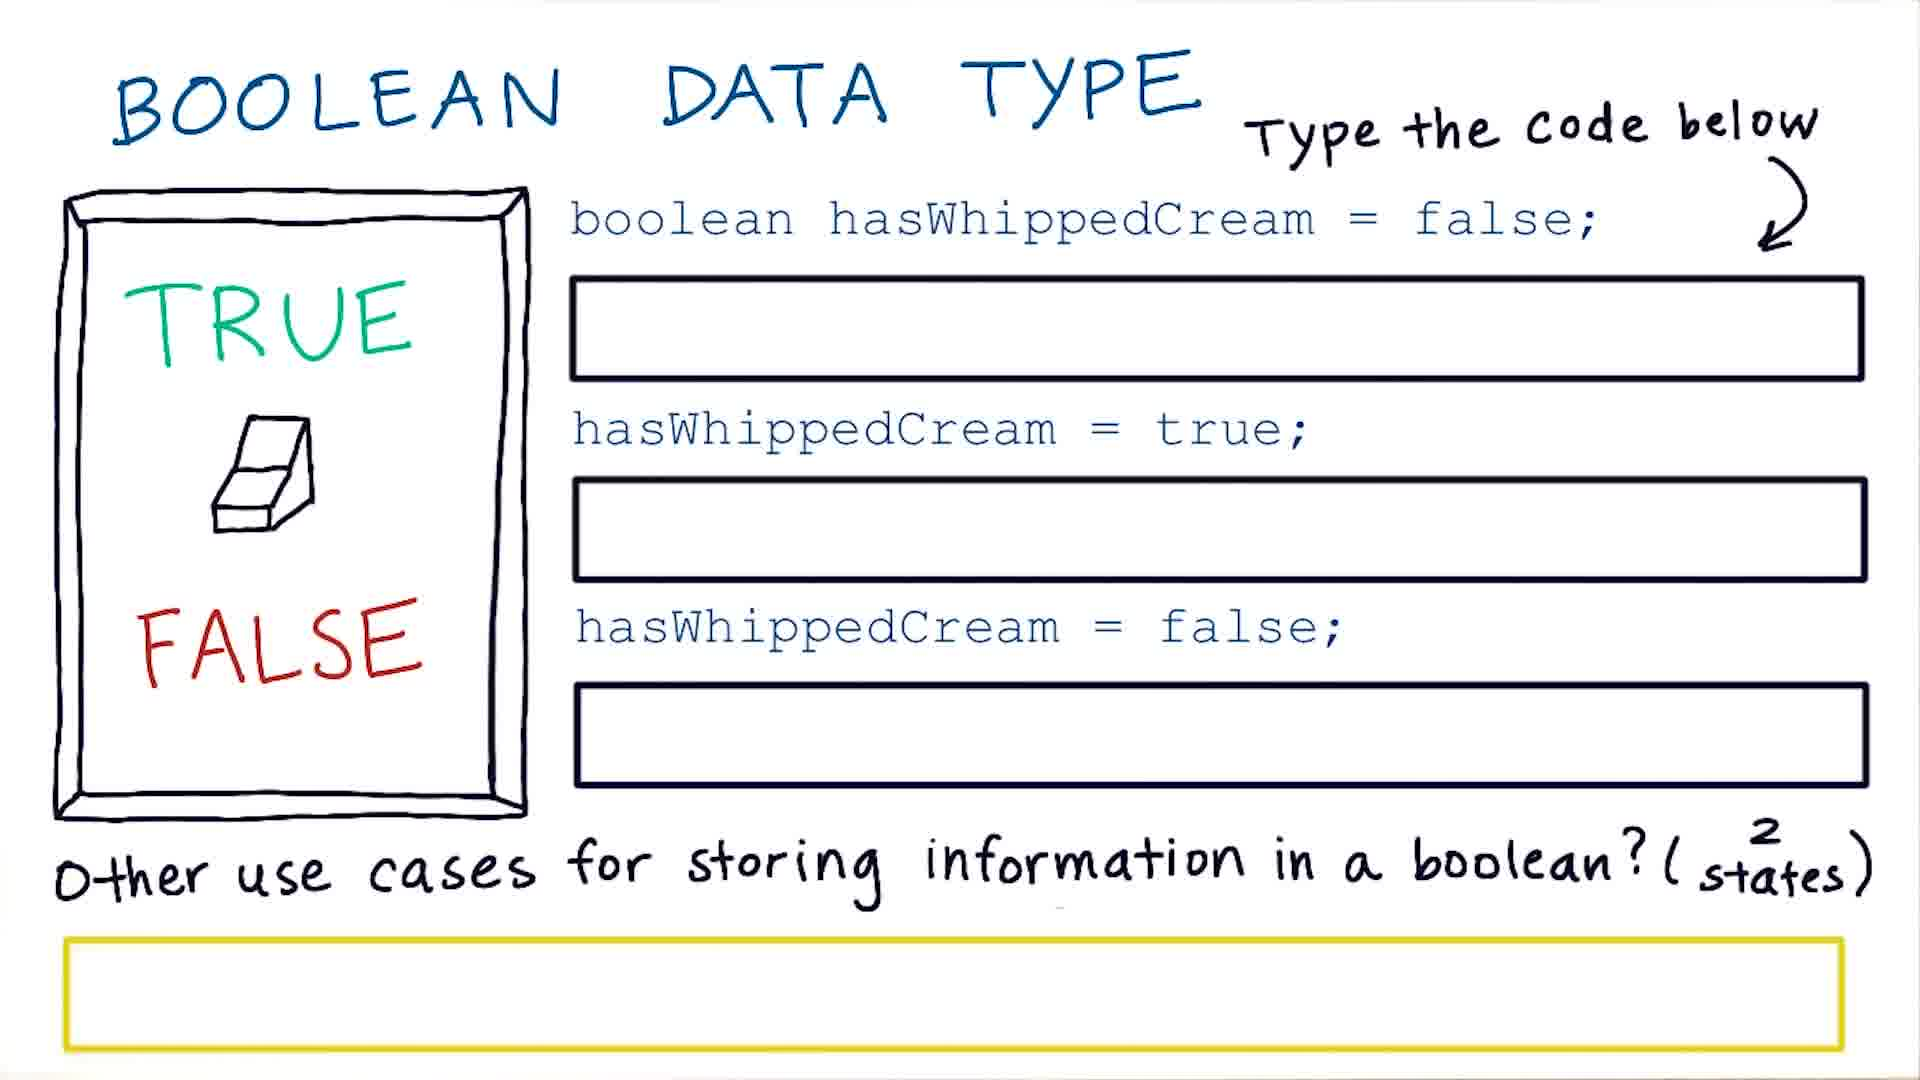 BOOLEAN DATA TYPE
Type the code below
boolean hasWhippedCream = false;
TRUE
hasWhippedCream = true;
FALSE
hasWhippedCream = false;
Other use cases for storing information in a boolean? (2 states)